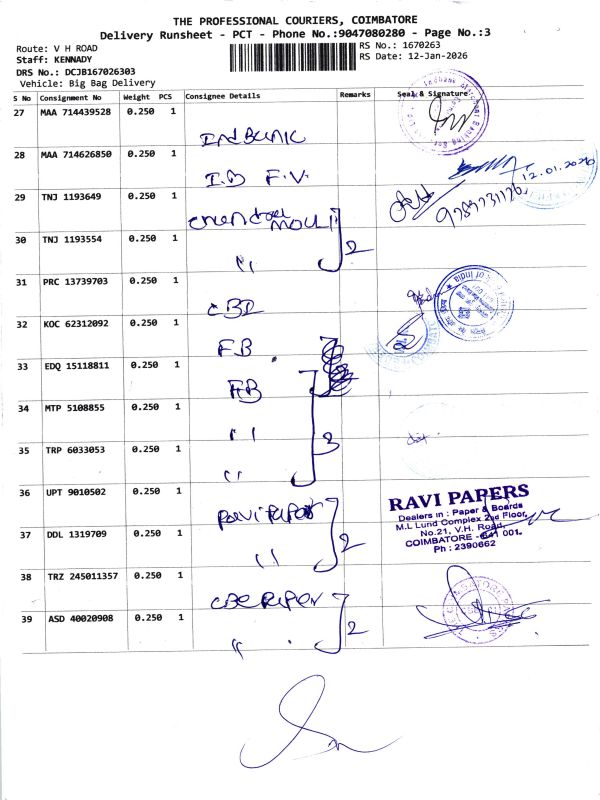 THE PROFESSIONAL COURIERS, COIMBATORE
Delivery Runsheet - PCT - Phone No.:9047080280 - Page No.:3
Route: V H ROAD
RS No.: 1670263
Staff: KENNADY
RS Date: 12-Jan-2026
DRS No.: DCJB167026303
Vehicle: Big Bag Delivery
S No Consignment No Weight PCS Consignee Details Remarks Seal & Signature
27 MAA 714439528 0.250 1
28 MAA 714626850 0.250 1
I.B F.V.
12.01.2026
29 TNJ 1193649 0.250 1
30 TNJ 1193554 0.250 1
" 2
31 PRC 13739703 0.250 1
CBI
32 KOC 62312092 0.250 1
FB
33 EDQ 15118811 0.250 1
FB
34 MTP 5108855 0.250 1
" 3
35 TRP 6033053 0.250 1
"
36 UPT 9010502 0.250 1
RAVI PAPERS
Dealers in : Paper & Boards
M.L Lund Complex 2nd Floor,
No.21, V.H. Road,
COIMBATORE - 641 001.
Ph : 2390662
37 DDL 1319709 0.250 1
" 2
38 TRZ 245011357 0.250 1
39 ASD 40020908 0.250 1
" 2